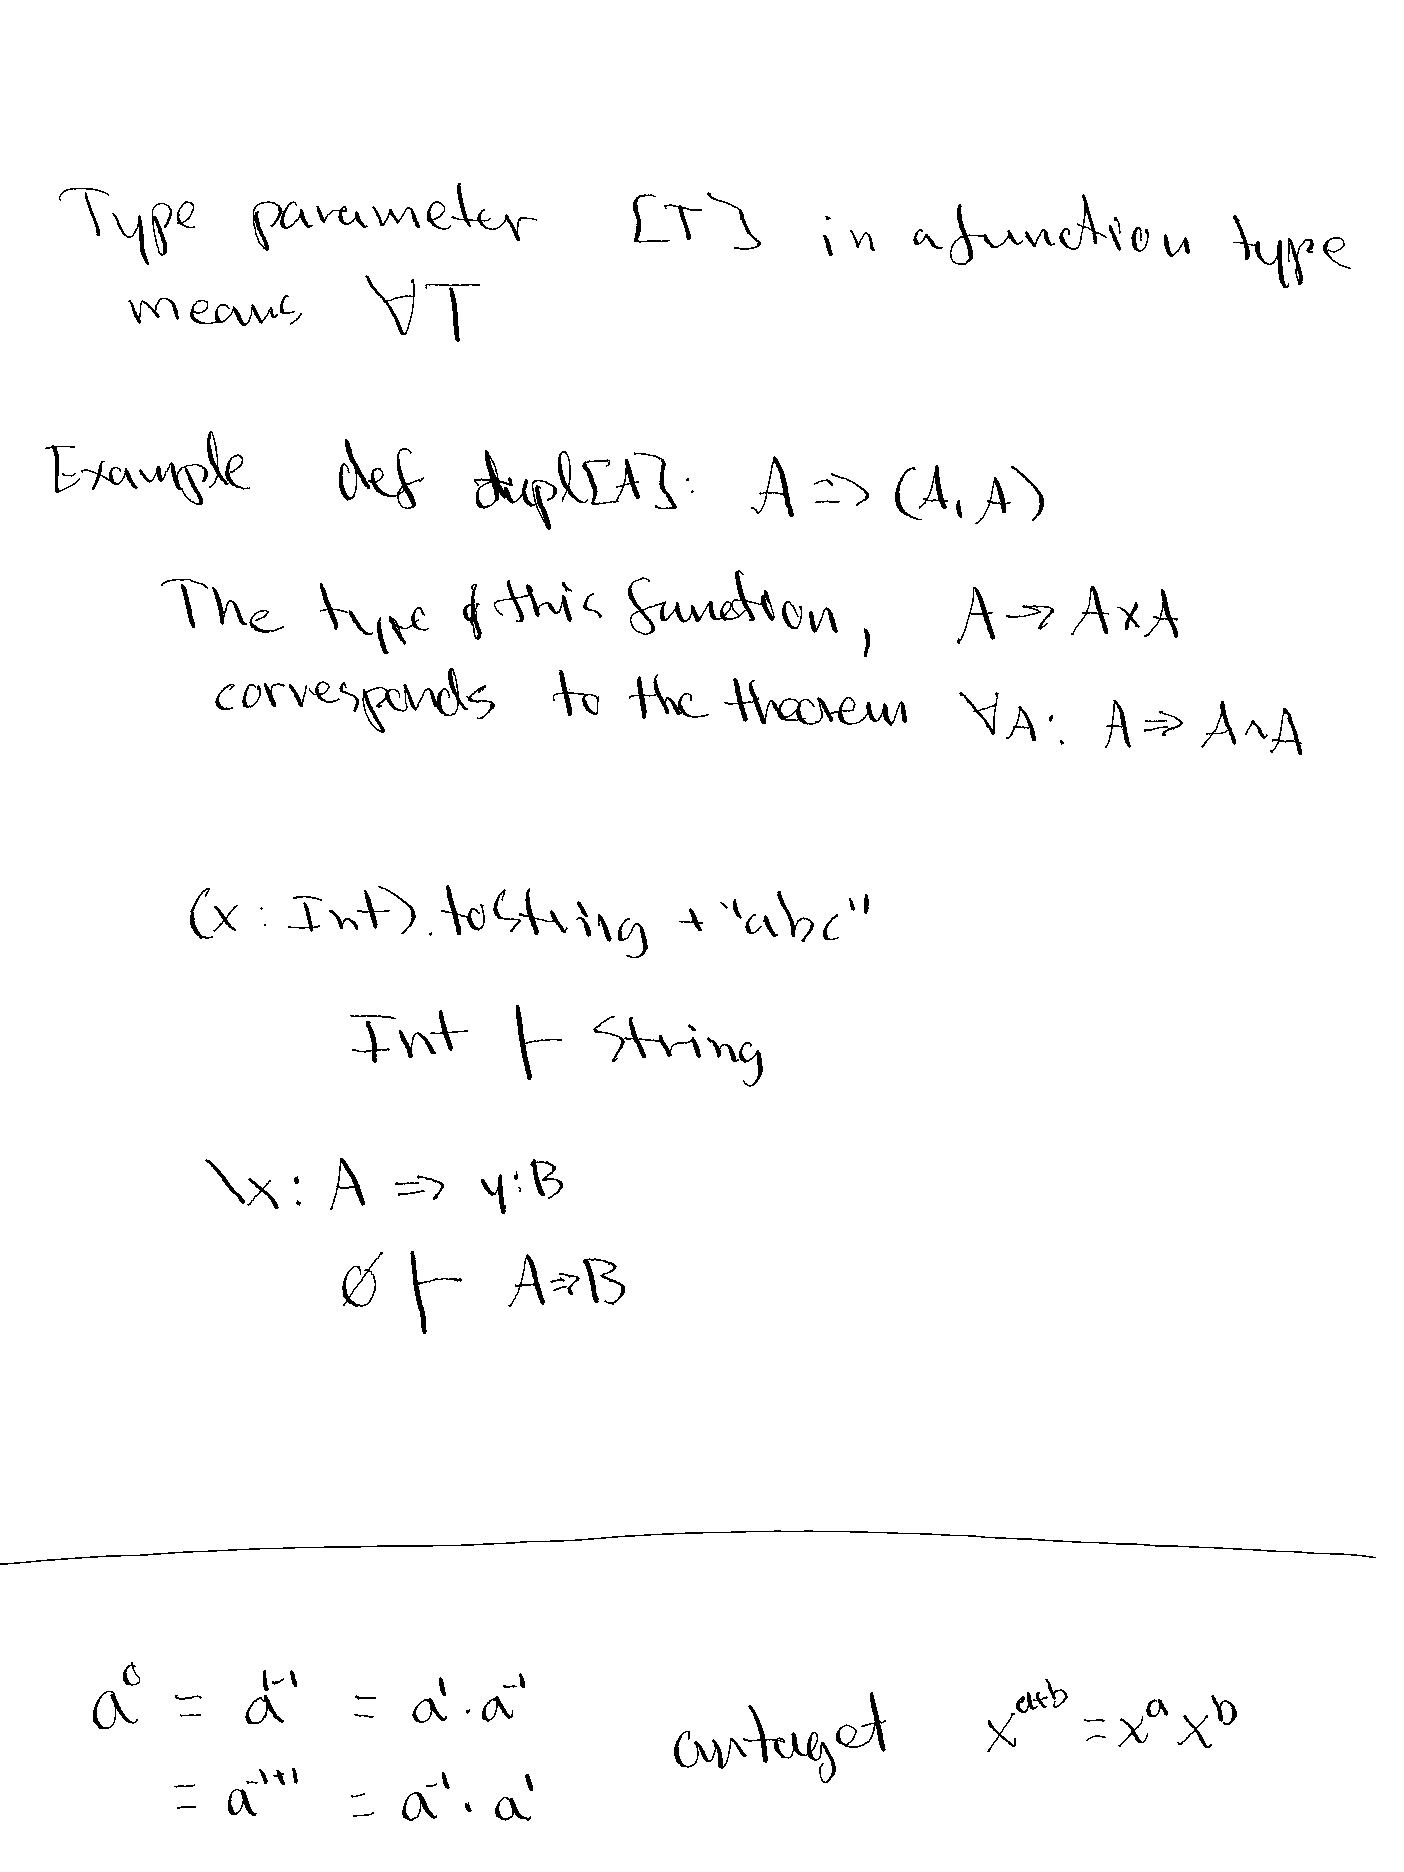 Type parameter [T] in a function type
means ∀T
Example def dupl[A]: A => (A, A)
The type of this function, A → A×A
corresponds to the theorem ∀A: A ⇒ A∧A
(x : Int).toString + "abc"
Int ⊢ String
\x: A => y:B
∅ ⊢ A⇒B
a⁰ = a¹⁻¹ = a¹·a⁻¹ antaget xᵃ⁺ᵇ = xᵃ xᵇ
= a⁻¹⁺¹ = a⁻¹·a¹